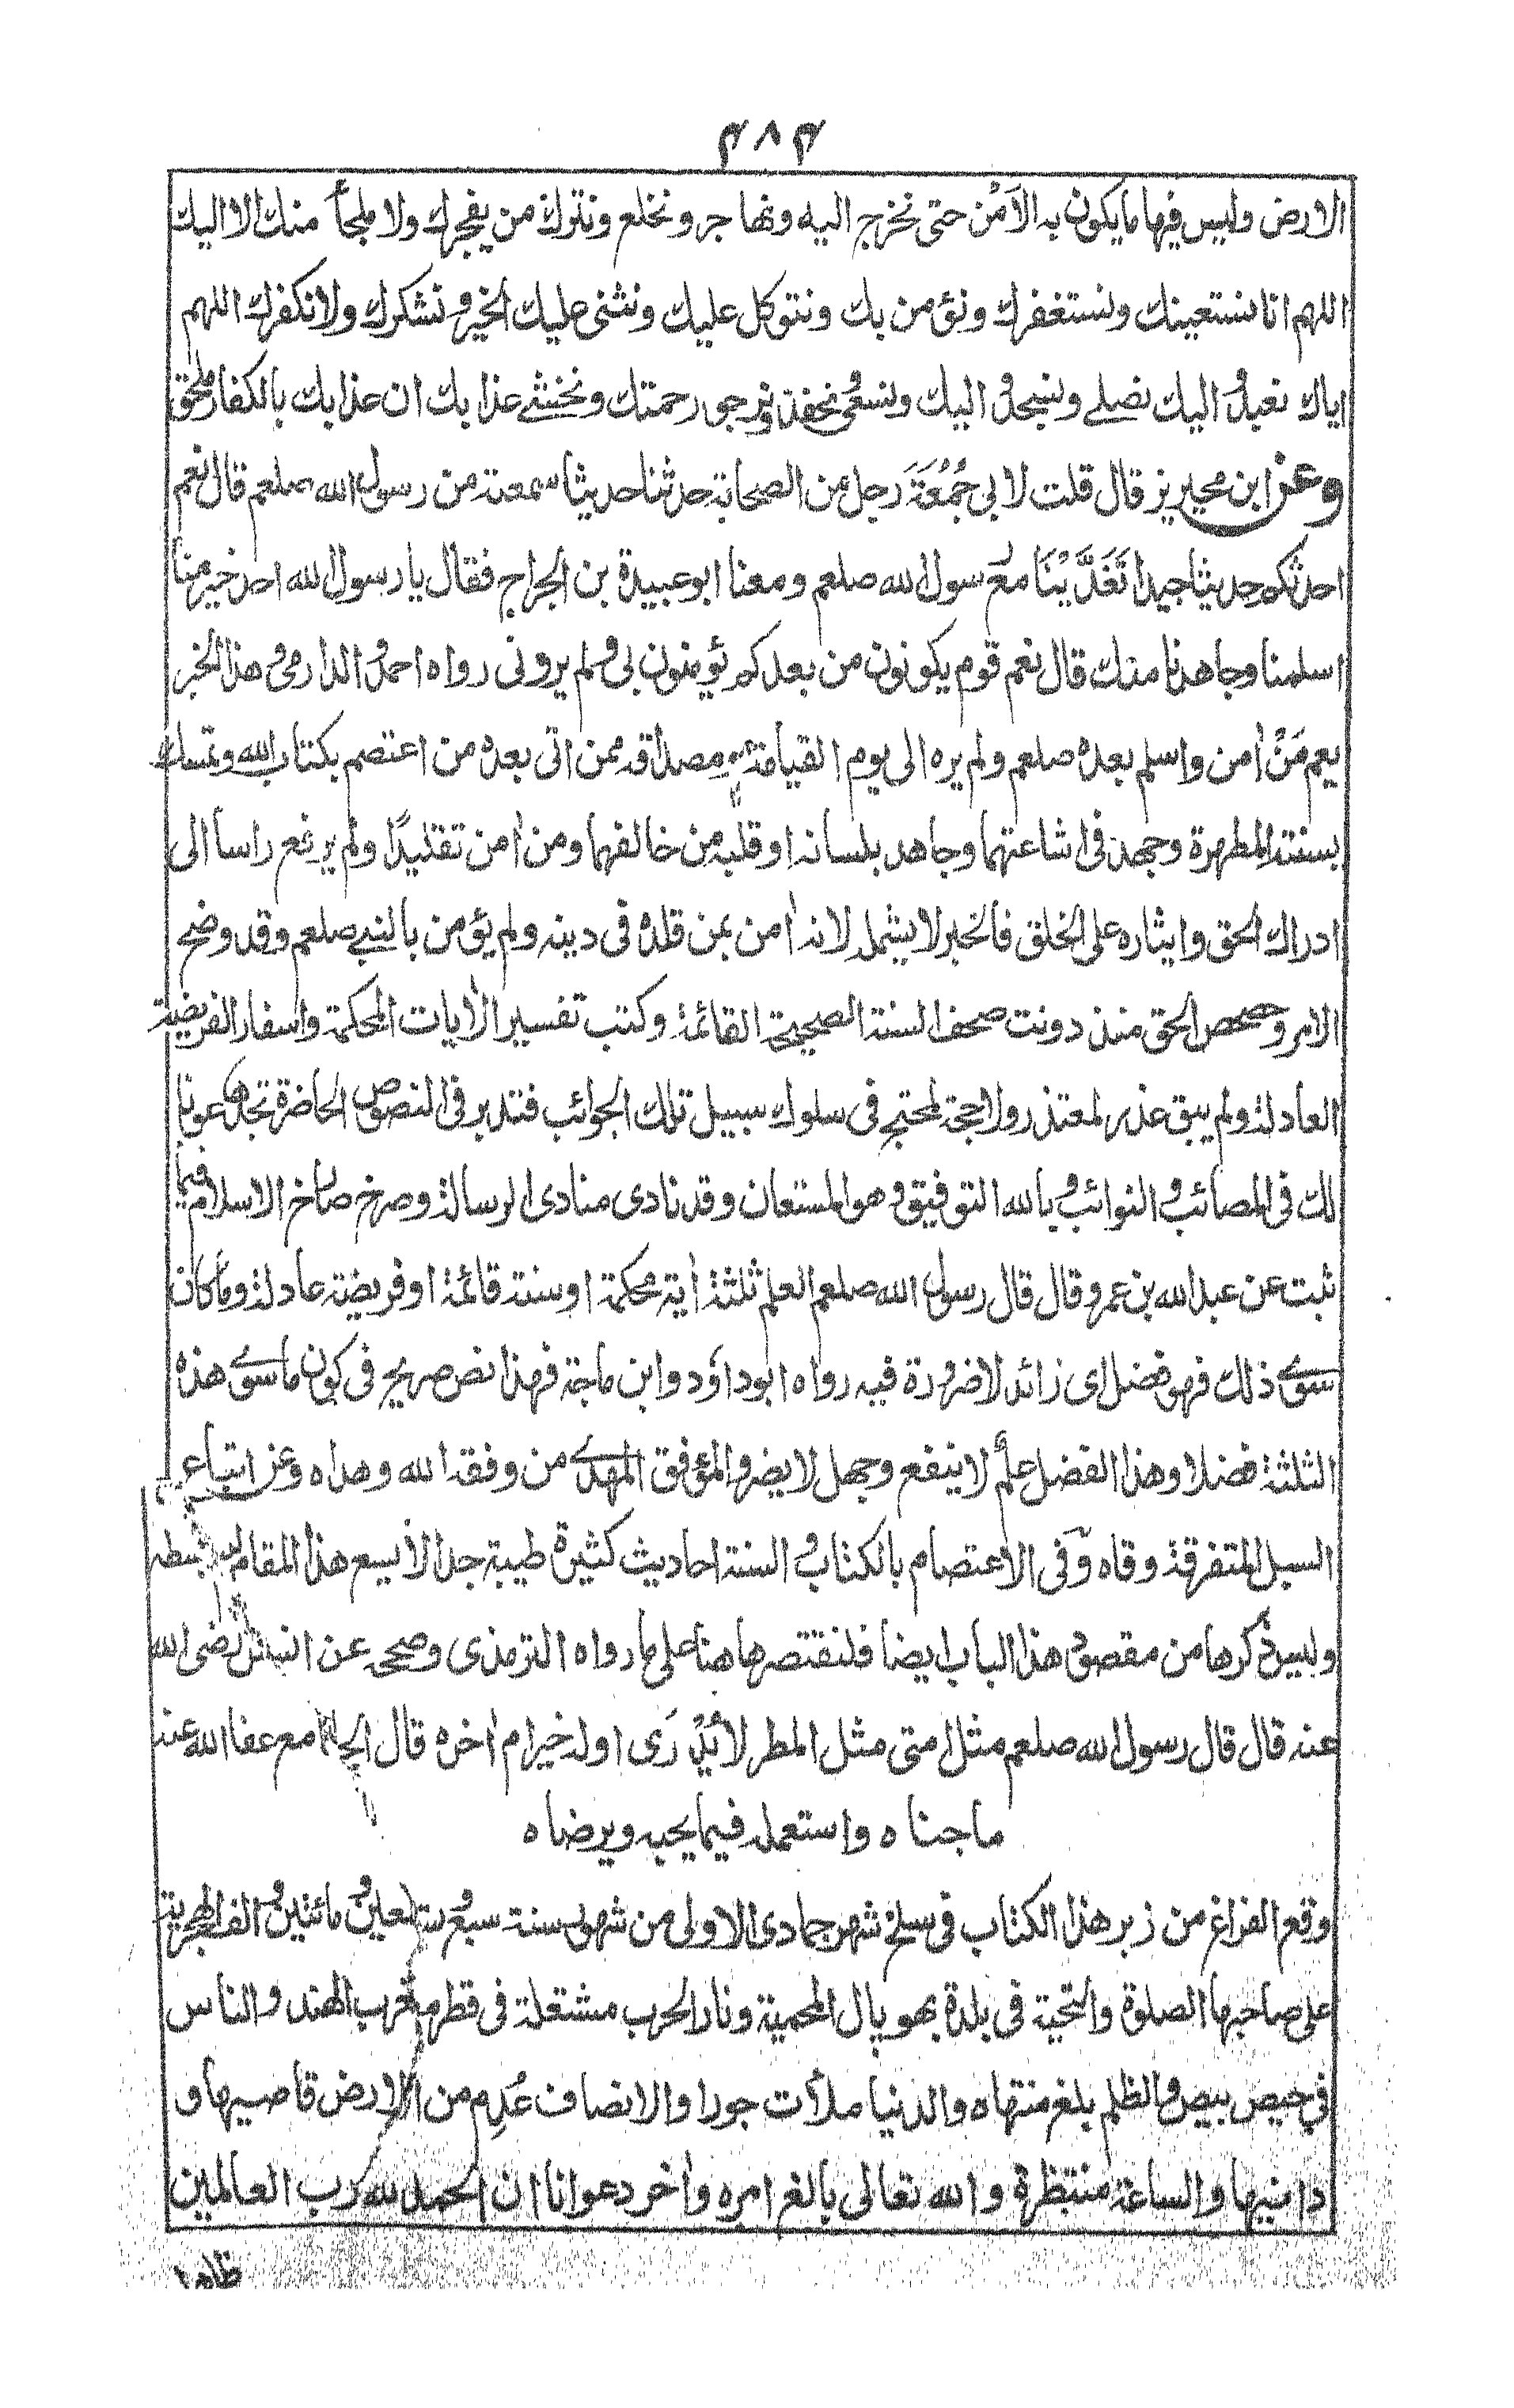 ٣٨٣
الارض وليس فيها ما يكون به الاَمْن حتى نخرج اليه ونهاجر ونخلع ونترك من يفجرك ولا ملجأ منك الا اليك
اللهم انا نستعينك ونستغفرك ونؤمن بك ونتوكل عليك ونثنى عليك الخير ونشكرك ولا نكفرك اللهم
اياك نعبد ولك اليك نصلے ونسجد واليك ونسعى ونحفد ونرجو رحمتك ونخشے عذابك ان عذابك بالكفار ملحق
وعن ابن محيريز قال قلت لابى جُمُعَةَ رجل من الصحابة حدثنا حديثا سمعته من رسول الله صلعم قال نعم
احدثكم حديثا جيدا تَغَدَّيْنَا مع رسول الله صلعم ومعنا ابو عبيدة بن الجراح فقال يا رسول الله احد خير منا
اسلمنا وجاهدنا معك قال نعم قوم يكونون من بعدكم يؤمنون بى ولم يرونى رواه احمد والدارمى وهذا الخبر
يعم مَنْ اٰمن واسلم بعده صلعم ولم يره الى يوم القيامة ومصداقه ممن اتى بعده من اعتصم بكتاب الله وتمسك
بسنته المطهرة وجهد فى اشاعتهما وجاهد بلسانه او قلبه من خالفهما ومن اٰمن تقليدًا ولم يرفع راسا الى
ادراك الحق وايثاره على الخلق فالخبر لا يشمله لانه اٰمن بمن قلده فى دينه ولم يؤمن بالنبے صلعم وقد وضح
الامر وحصحص الحق منذ دونت صحف السنة الصحيحة القائمة وكتب تفسير الاٰيات المحكمة واسفار الفريضة
العادلة ولم يبق عذر لمعتذر ولا حجة لمحتج فى سلوك سبيل تلك الجوائب فتدبر فى النصوص الحاضرة تجدها عونا
لك فى المصائب والنوائب وبالله التوفيق وهو المستعان وقد نادى منادى الرسالة وصرخ صارخ الاسلام فيما
ثبت عن عبد الله بن عمرو قال قال رسول الله صلعم العلم ثلثة اٰية محكمة او سنة قائمة او فريضة عادلة وما كان
سوے ذلك فهو فضل اى زائد لا ضرورة فيه رواه ابو داؤد وابن ماجة فهذا نص صريح فى كون ما سوى هذه
الثلثة فضلا وهذا الفضل علمٌ لا ينفع وجهل لا يضر والمؤفق المهدے من وفقه الله وهداه وعن اتباع
السبل المتفرقة وقاه وفى الاعتصام بالكتاب والسنة احاديث كثيرة طيبة جدا لا يسع هذا المقام لبسطه
وليس ذكرها من مقصود هذا الباب ايضا فلنقتصر هاهنا على ما رواه الترمذى وصححه عن انس رضى الله
عنه قال قال رسول الله صلعم مثل امتى مثل المطر لا يُدْرَى اوله خير ام اٰخره قال الجامع عفا الله عنه
ما جناه واستعمله فيما يحبه ويرضاه
وقع الفراغ من زبر هذا الكتاب فى سلخ شهر جمادى الاولى من شهور سنة سبع وتسعين ومائتين والف الهجرية
على صاحبها الصلوة والتحية فى بلدة بهوپال المحمية ونار الحرب مشتعلة فى قطر مغرب الهند والناس
فى حيص بيص والظلم بلغ منتهاه والدنيا ملأت جورا والانصاف عُدِم من الارض قاصيها و
دانيها والساعة منتظرة والله تعالى بالغ امره واٰخر دعوانا ان الحمد لله رب العالمين